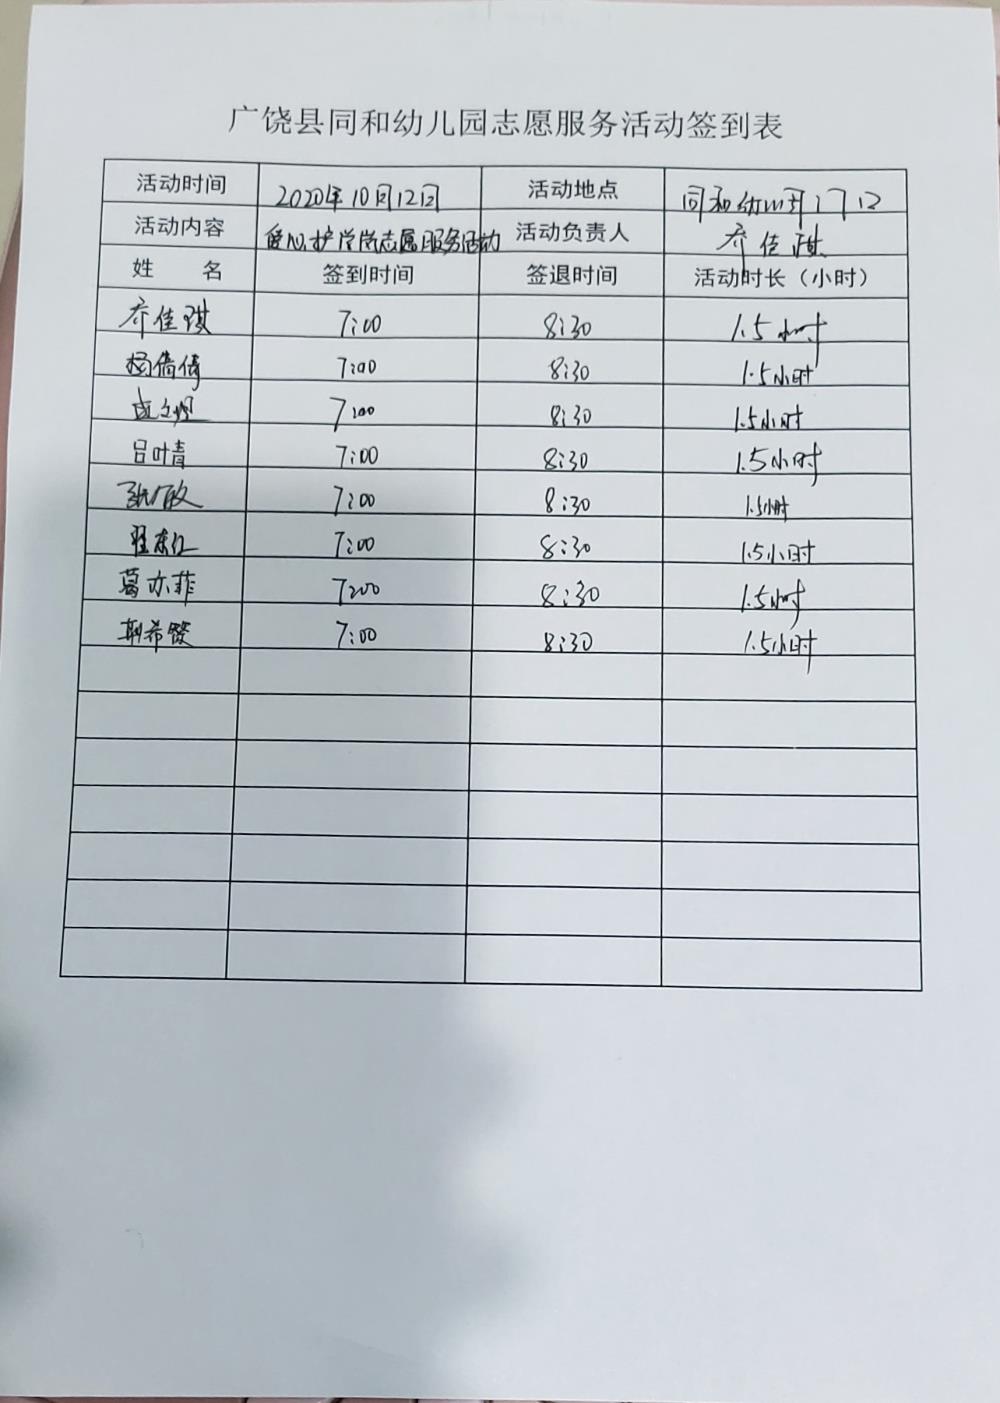 广饶县同和幼儿园志愿服务活动签到表
活动时间 2020年10月12日 活动地点 同和幼儿园门口
活动内容 爱心护学岗志愿服务活动 活动负责人 乔佳琪
姓 名 签到时间 签退时间 活动时长（小时）
乔佳琪 7:00 8:30 1.5小时
杨倩倩 7:00 8:30 1.5小时
7:00 8:30 1.5小时
吕叶青 7:00 8:30 1.5小时
张敏 7:00 8:30 1.5小时
7:00 8:30 1.5小时
葛亦菲 7:00 8:30 1.5小时
希 7:00 8:30 1.5小时